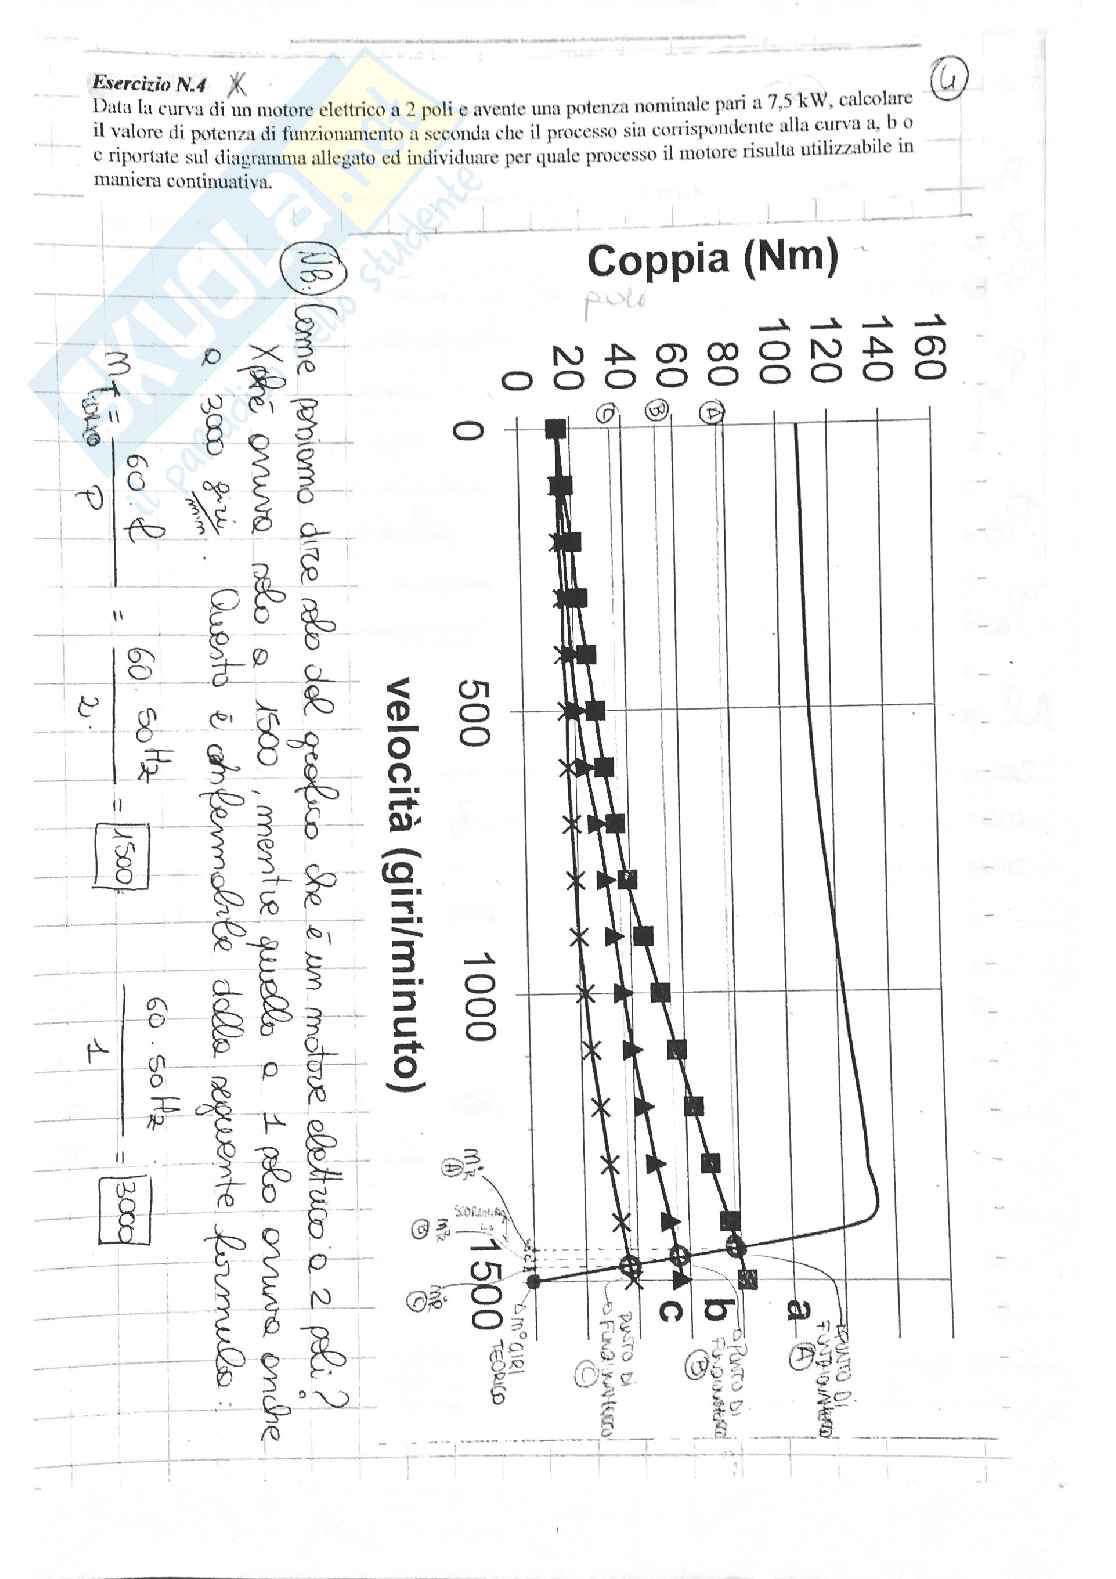 4
Esercizio N.4 X
Data la curva di un motore elettrico a 2 poli e avente una potenza nominale pari a 7,5 kW, calcolare
il valore di potenza di funzionamento a seconda che il processo sia corrispondente alla curva a, b o
c riportate sul diagramma allegato ed individuare per quale processo il motore risulta utilizzabile in
maniera continuativa.
SKUOLA.net
il paradiso dello studente
Coppia (Nm)
160
140
120
100
80
60
40
20
0
A
B
C
0
500
1000
1500
velocità (giri/minuto)
a
b
c
PUNTO DI
FUNZIONAMENTO
A
PUNTO DI
FUNZIONAMENTO
B
PUNTO DI
FUNZIONAMENTO
C
n° GIRI
TEORICO
A
B
C
NB: Come possiamo dire solo dal grafico che è un motore elettrico a 2 poli?
Xché arriva solo a 1500, mentre quello a 1 polo arriva anche
a 3000 giri/min. Questo è confermabile dalla seguente formula:
= 60·f / P = 60·50Hz / 2 = 1500
60·50Hz / 1 = 3000